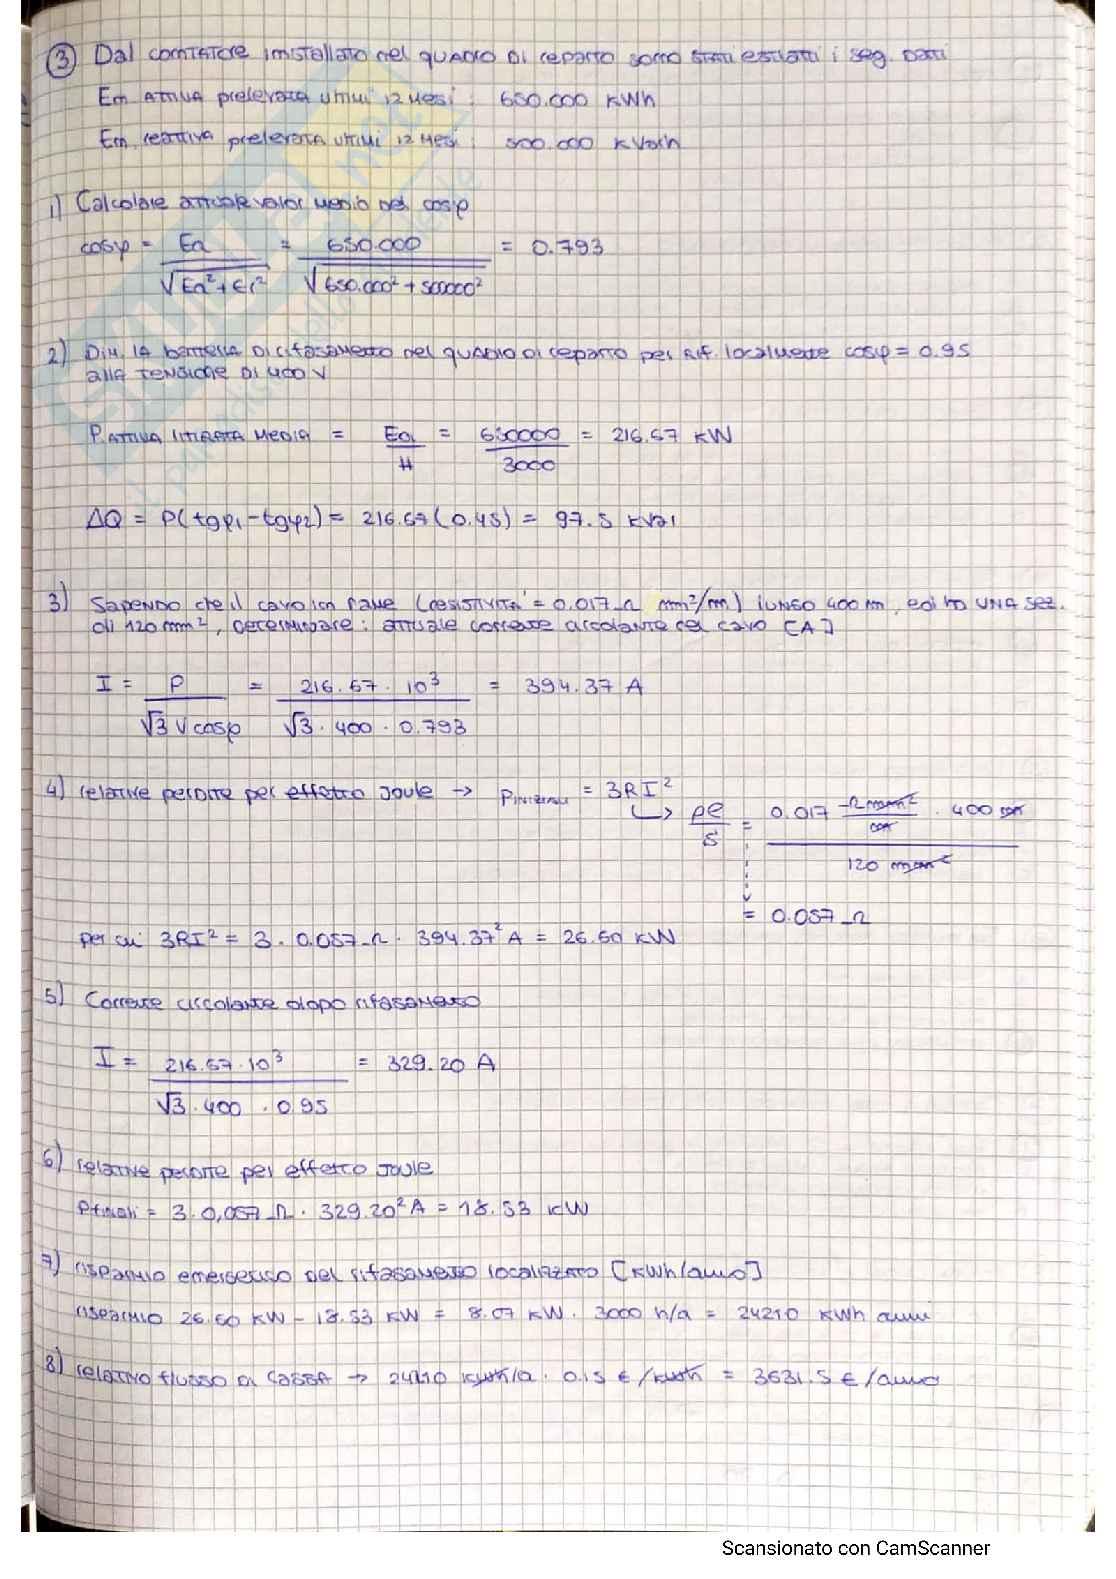 ③ Dal contatore installato nel quadro di reparto sono stati estratti i seg. dati
En attiva prelevata ultimi 12 mesi : 650.000 kWh
En. reattiva prelevata ultimi 12 mesi : 500.000 kVarh
1) Calcolare attuale valor medio del cosφ
cosφ = Ea / √Ea²+Er² = 650.000 / √650.000²+500000² = 0.793
2) Dim. la batteria di rifasamento nel quadro di reparto per rif. localmente cosφ = 0.95
alla tensione di 400 V
P. attiva ritirata media = Ea / H = 650000 / 3000 = 216.67 kW
ΔQ = P(tgφ1 - tgφ2) = 216.67 (0.45) = 97.5 kVar
3) Sapendo che il cavo in rame (resistività = 0.017 Ω mm²/m) lungo 400 m, ed ha una sez.
di 120 mm², determinare: attuale corrente circolante nel cavo [A]
I = P / √3 V cosφ = 216.67 · 10³ / √3 · 400 · 0.793 = 394.37 A
4) relative perdite per effetto Joule → Piniziali = 3RI²
↳ ρl / S = 0.017 Ω mm² / m · 400 m / 120 mm²
= 0.057 Ω
per cui 3RI² = 3 · 0.057 Ω · 394.37² A = 26.60 kW
5) Corrente circolante dopo rifasamento
I = 216.67 · 10³ / √3 · 400 · 0.95 = 329.20 A
6) relative perdite per effetto Joule
Pfinali = 3 · 0,057 Ω · 329.20² A = 18.53 kW
7) risparmio energetico del rifasamento localizzato [kWh/anno]
risparmio 26.60 kW - 18.53 kW = 8.07 kW · 3000 h/a = 24210 kWh annui
8) relativo flusso di cassa → 24210 kWh/a · 0.15 €/kWh = 3631.5 €/anno
Scansionato con CamScanner